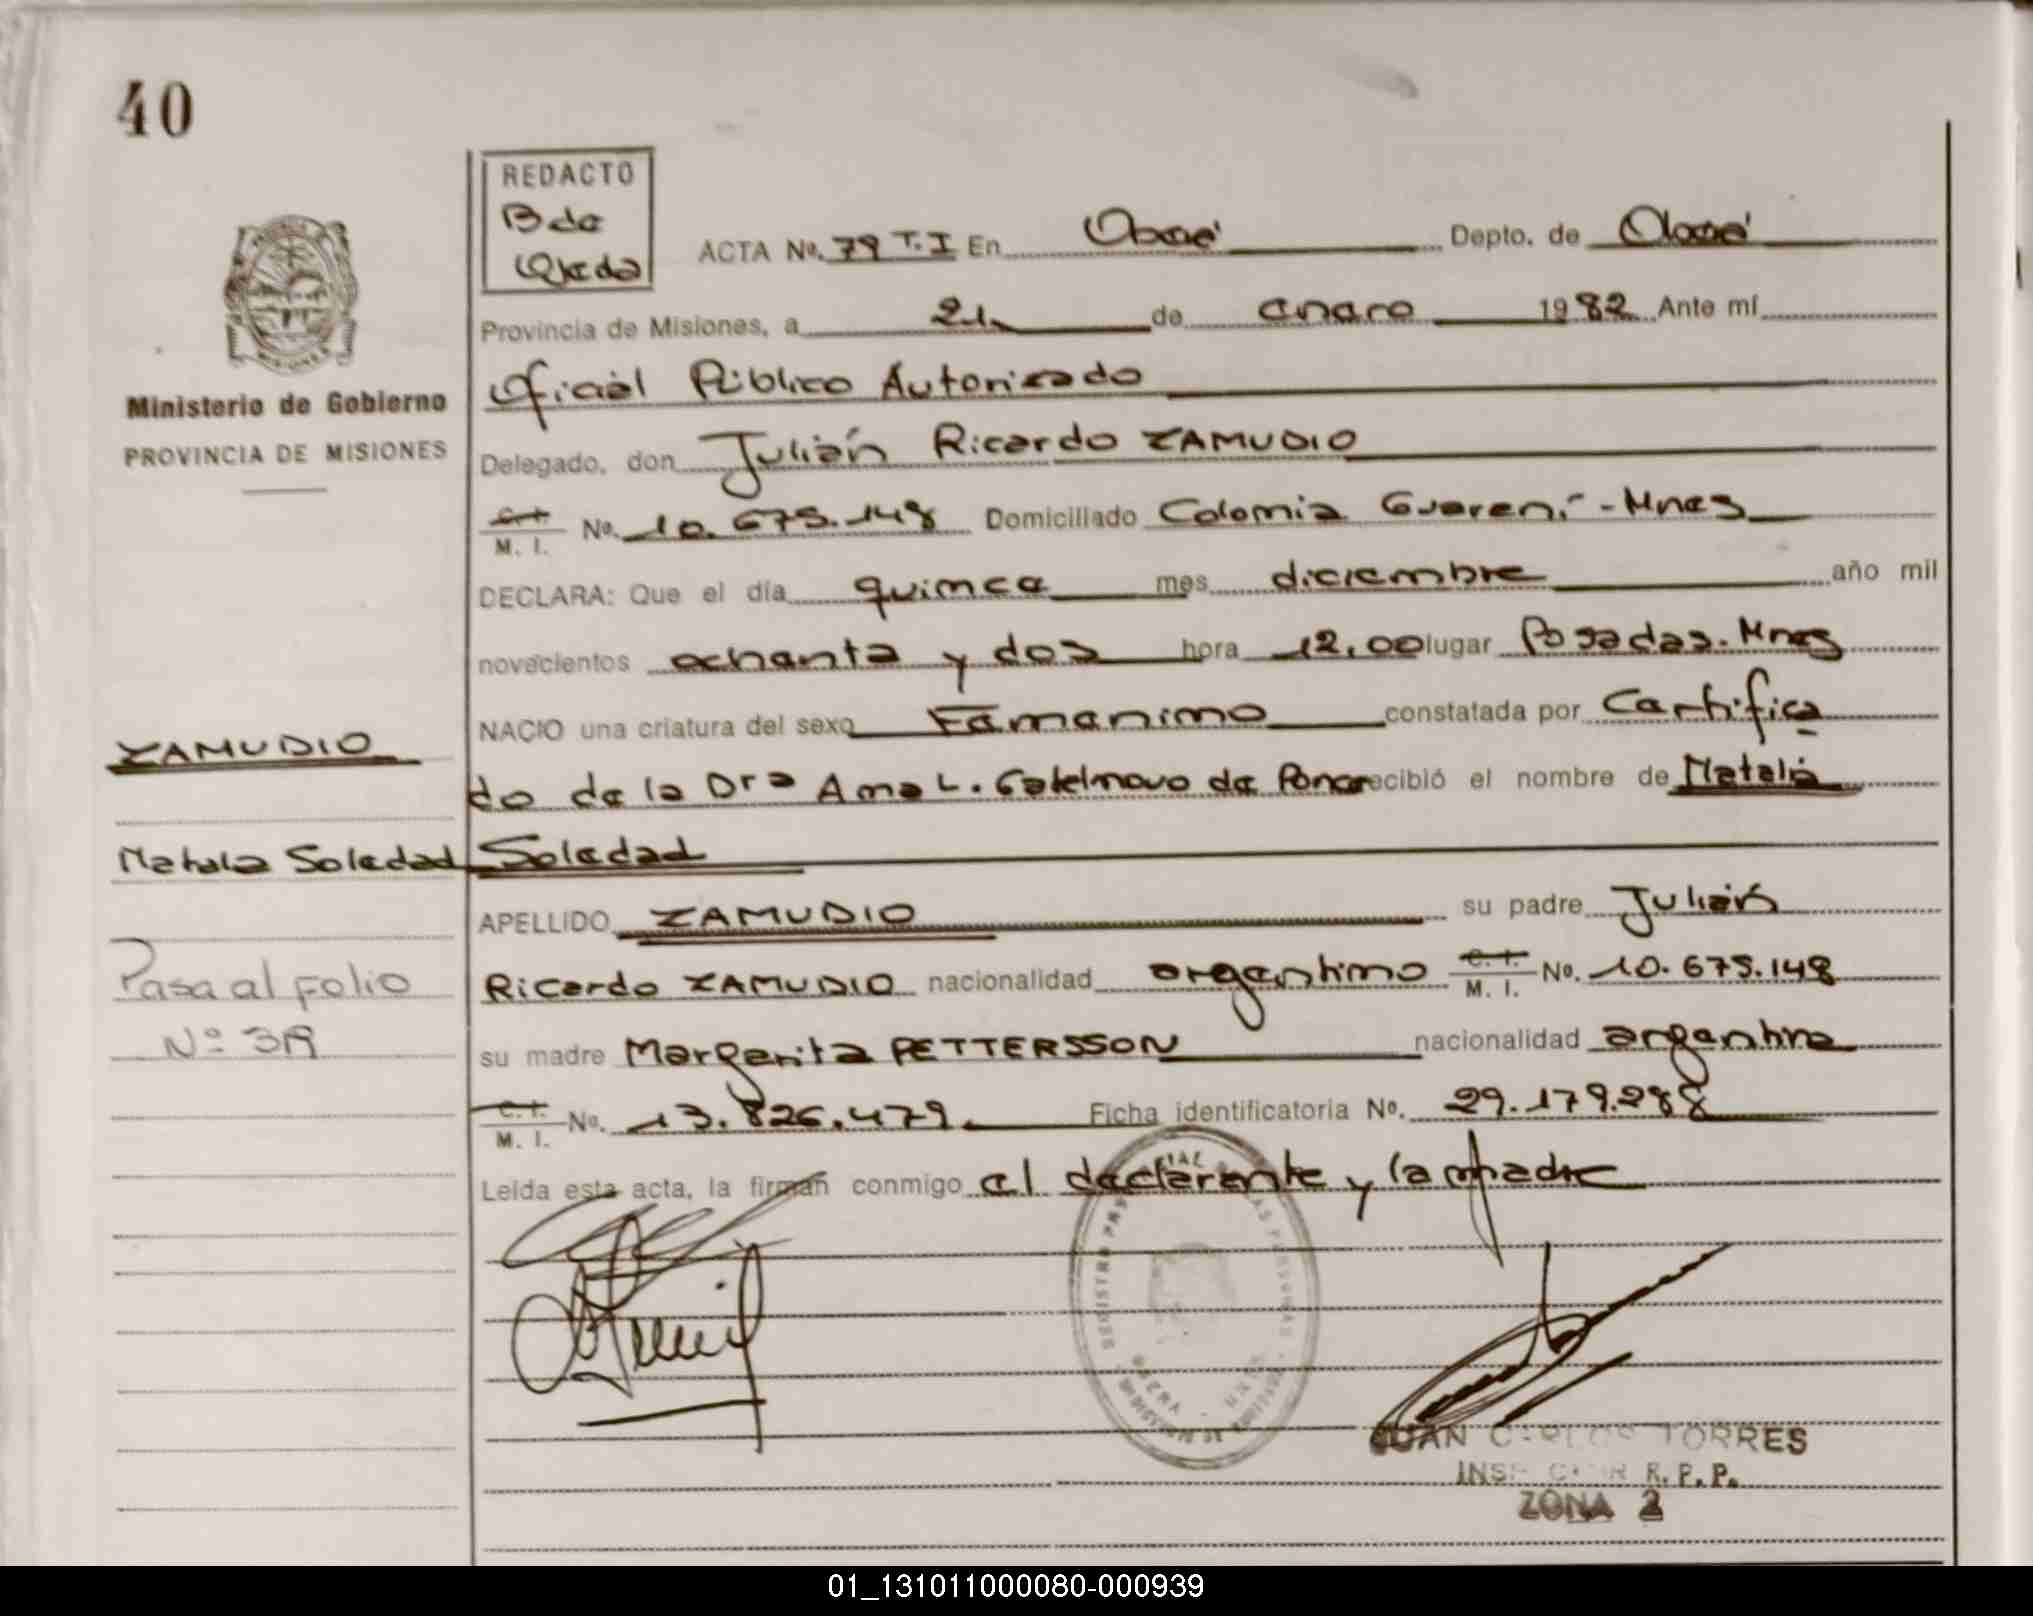 40
REDACTO
B de
Ojeda
ACTA Nº. 79 T.I En Oberá Depto. de Oberá
Provincia de Misiones, a 21 de enero 1982 Ante mí
Oficial Público Autorizado
Ministerio de Gobierno
PROVINCIA DE MISIONES
Delegado, don Julián Ricardo ZAMUDIO
C. I.
M. I. Nº. 10.675.148 Domiciliado Colonia Guaraní - Mnes
DECLARA: Que el día quince mes diciembre año mil
novecientos ochenta y dos hora 12,00 lugar Posadas. Mnes
NACIO una criatura del sexo Femenino constatada por Certifica
ZAMUDIO
do de la Dra Ana L. de recibió el nombre de Natalia
Natalia Soledad Soledad
APELLIDO ZAMUDIO su padre Julián
Pasa al folio
Nº 319
Ricardo ZAMUDIO nacionalidad argentino C. I.
M. I. Nº. 10.675.148
su madre Margarita PETTERSSON nacionalidad argentina
C. I.
M. I. Nº. 13.826.479 Ficha identificatoria Nº. 29.179.288
Leída esta acta, la firman conmigo el declarante y la madre
JUAN CARLOS TORRES
INSPECTOR R.P.P.
ZONA 2
01_131011000080-000939